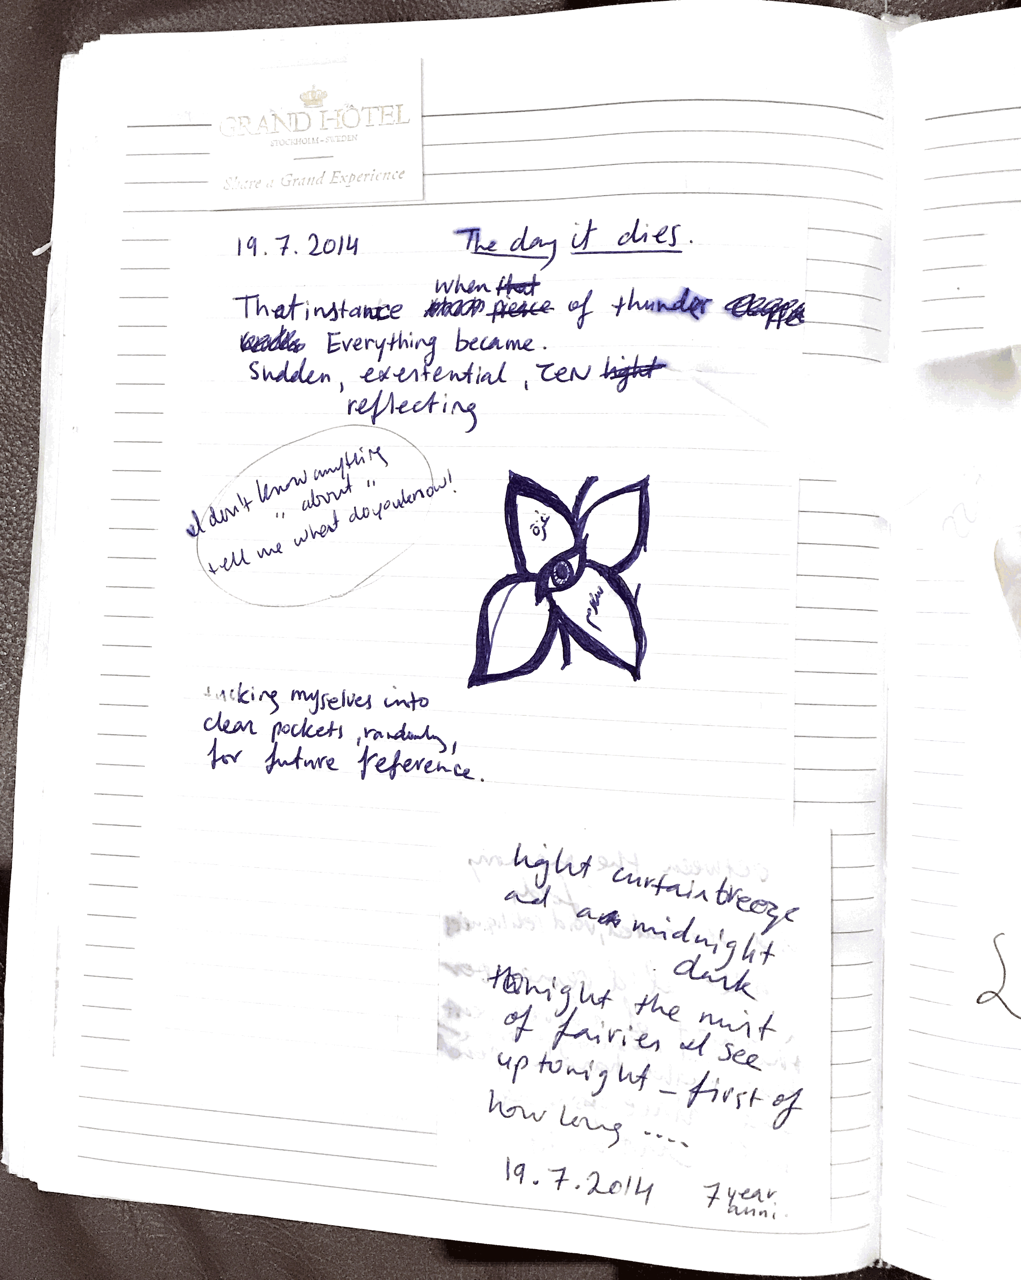 GRAND HÔTEL
STOCKHOLM - SWEDEN
Share a Grand Experience
19.7.2014 The day it dies.
when that
That instance pierce of thunder
Everything became.
Sudden, exestential, ZEN light
reflecting
I don't know anything
" about "
tell me what do you know!
tucking myselves into
clear pockets, randomly,
for future reference.
light curtain breeze
ad a midnight
dark
tonight the mist
of fairies I see
up tonight – first of
how long ....
19.7.2014 7 year
anni.